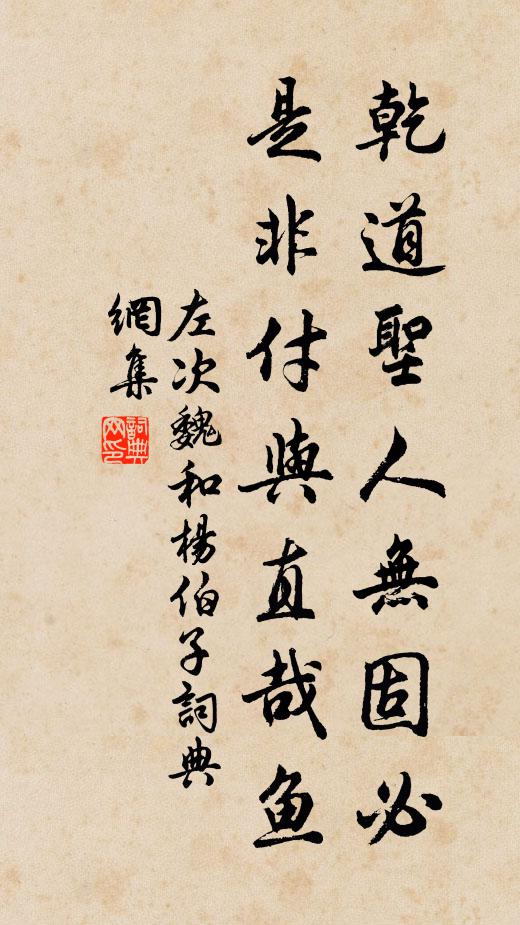 乾道聖人無固必
是非付與直哉魚
左次魏和楊伯子詞典
網集
詞典
网印